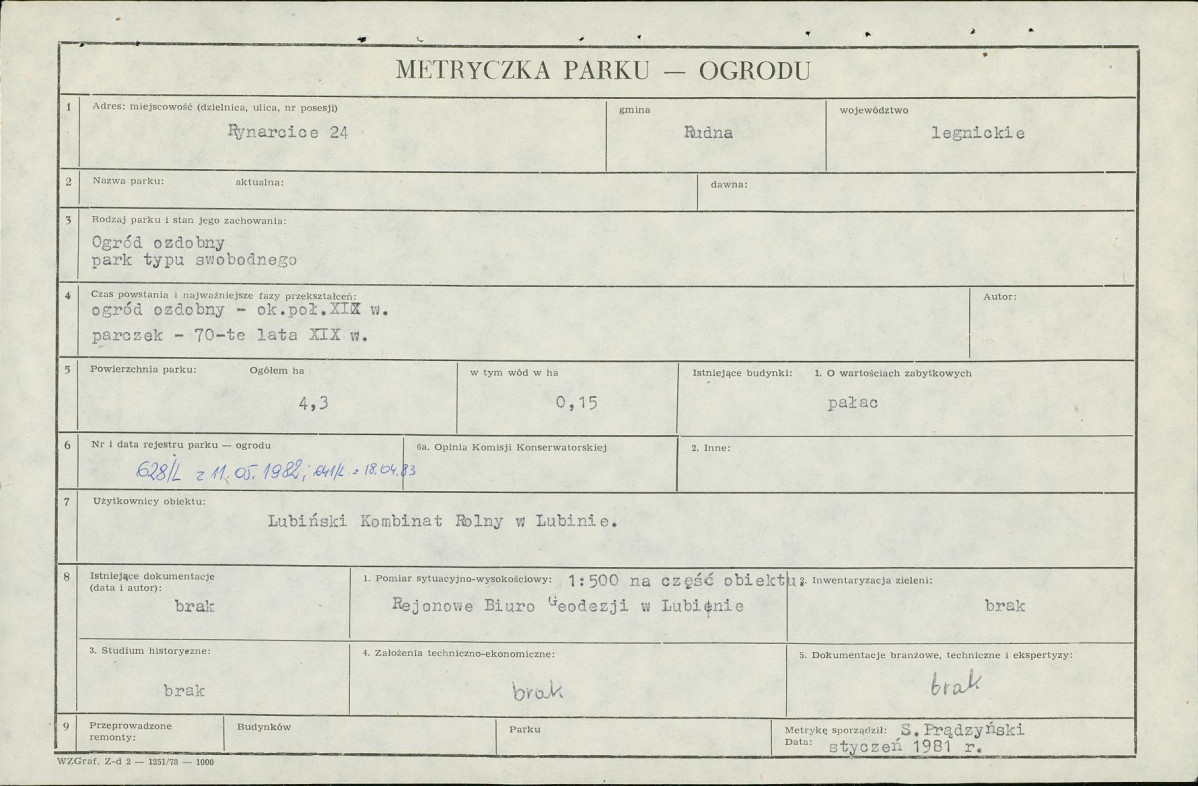 METRYCZKA PARKU — OGRODU
1 Adres: miejscowość (dzielnica, ulica, nr posesji) gmina województwo
Rynarcice 24 Rudna legnickie
2 Nazwa parku: aktualna: dawna:
3 Rodzaj parku i stan jego zachowania:
Ogród ozdobny
park typu swobodnego
4 Czas powstania i najważniejsze fazy przekształceń: Autor:
ogród ozdobny - ok.poł.XIX w.
parczek - 70-te lata XIX w.
5 Powierzchnia parku: Ogółem ha w tym wód w ha Istniejące budynki: 1. O wartościach zabytkowych
4,3 0,15 pałac
6 Nr i data rejestru parku — ogrodu 6a. Opinia Komisji Konserwatorskiej 2. Inne:
628/L z 11.05.1982; 641/L z 18.04.83
7 Użytkownicy obiektu:
Lubiński Kombinat Rolny w Lubinie.
8 Istniejące dokumentacje 1. Pomiar sytuacyjno-wysokościowy: 1:500 na część obiektu 2. Inwentaryzacja zieleni:
(data i autor):
brak Rejonowe Biuro Geodezji w Lubinie brak
3. Studium historyczne: 4. Założenia techniczno-ekonomiczne: 5. Dokumentacje branżowe, techniczne i ekspertyzy:
brak brak brak
9 Przeprowadzone Budynków Parku Metrykę sporządził: S. Prądzyński
remonty: Data: styczeń 1981 r.
WZGraf. Z-d 2 — 1251/78 — 1000